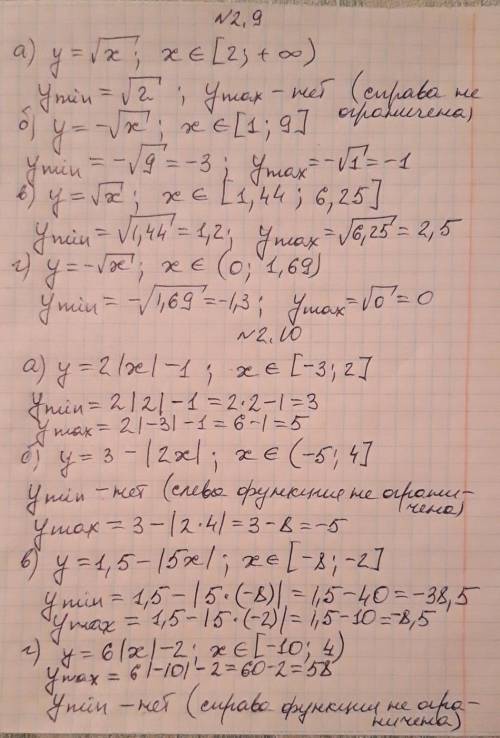 №2.9
а) y = √x ; x ∈ [2; +∞)
ymin = √2 ; ymax – нет (справа не ограничена)
б) y = -√x ; x ∈ [1; 9]
ymin = -√9 = -3 ; ymax = -√1 = -1
в) y = √x ; x ∈ [1,44 ; 6,25]
ymin = √1,44 = 1,2; ymax = √6,25 = 2,5
г) y = -√x ; x ∈ (0; 1,69)
ymin = -√1,69 = -1,3 ; ymax = √0 = 0
№2.10
а) y = 2|x| - 1 ; x ∈ [-3; 2]
ymin = 2|2| - 1 = 2·2 - 1 = 3
ymax = 2|-3| - 1 = 6 - 1 = 5
б) y = 3 - |2x| ; x ∈ (-5; 4]
ymin – нет (слева функция не ограни-
чена)
ymax = 3 - |2·4| = 3 - 8 = -5
в) y = 1,5 - |5x| ; x ∈ [-8; -2]
ymin = 1,5 - |5·(-8)| = 1,5 - 40 = -38,5
ymax = 1,5 - |5·(-2)| = 1,5 - 10 = -8,5
г) y = 6|x| - 2; x ∈ [-10; 4)
ymax = 6|-10| - 2 = 60 - 2 = 58
ymin – нет (справа функция не огра-
ничена)